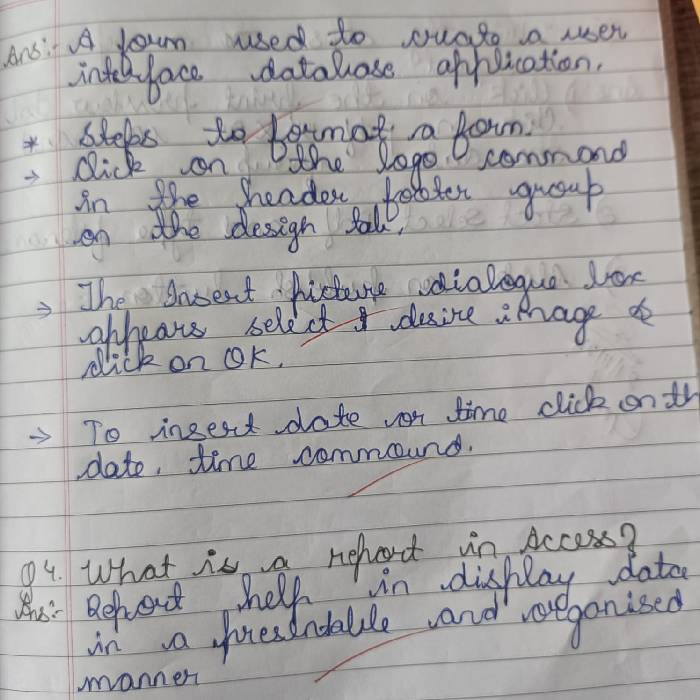 Ans:- A form used to create a user
interface database application.
* Steps to format a form.
→ Click on the logo command
in the header footer group
on the design tab.
→ The Insert picture dialogue box
appears select & desire image &
click on OK.
→ To insert date or time click on th
date, time commound.
Q4. What is a report in Access?
Ans:- Report help in display data
in a presendable and organised
manner